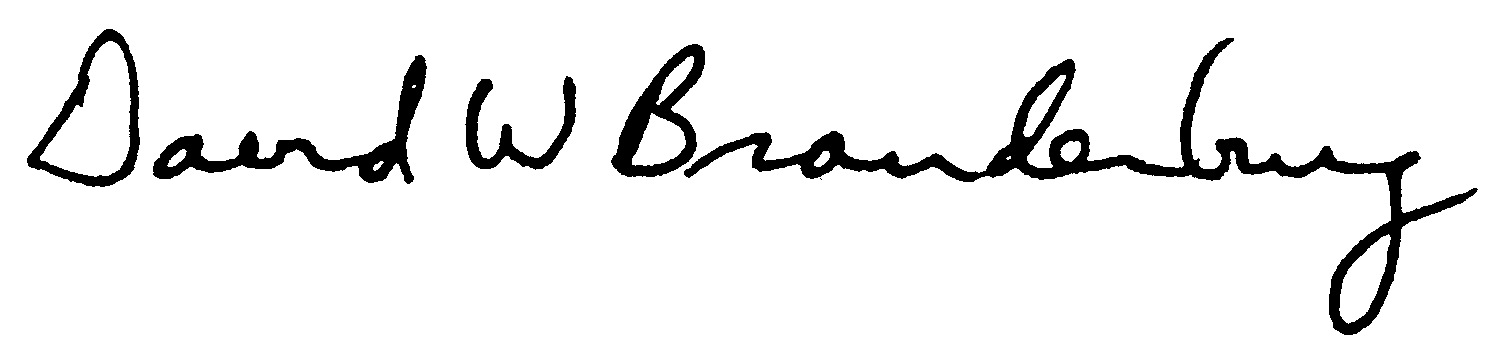 David W Brandenburg